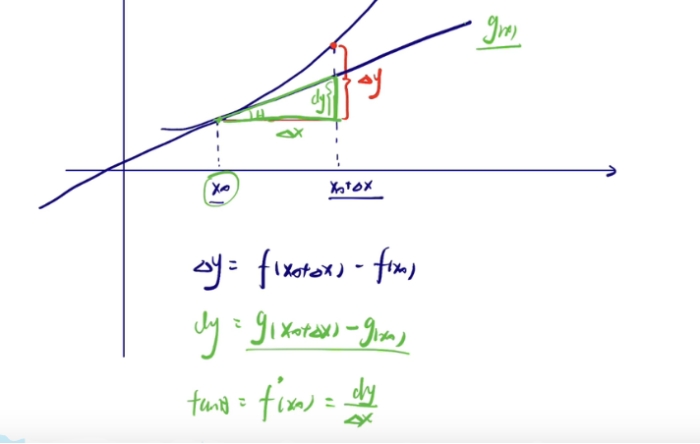 g(x)
Δy
dy
θ
Δx
x₀
x₀+Δx
Δy = f(x₀+Δx) - f(x₀)
dy = g(x₀+Δx) - g(x₀)
tanθ = f'(x₀) = dy/Δx